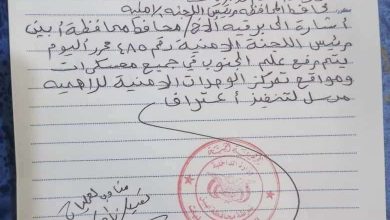 محافظ المحافظة رئيس اللجنة الامنية
أشارة الى برقية الاخ/ محافظ محافظة أبين
رئيس اللجنة الامنية رقم ٤٨٥ محرر اليوم
يتم رفع علم الجنوب في جميع معسكرات
ومواقع تمركز الوحدات الامنية للاهمية
مرسل لتنفيذ أعتراف
مناوب عمليات